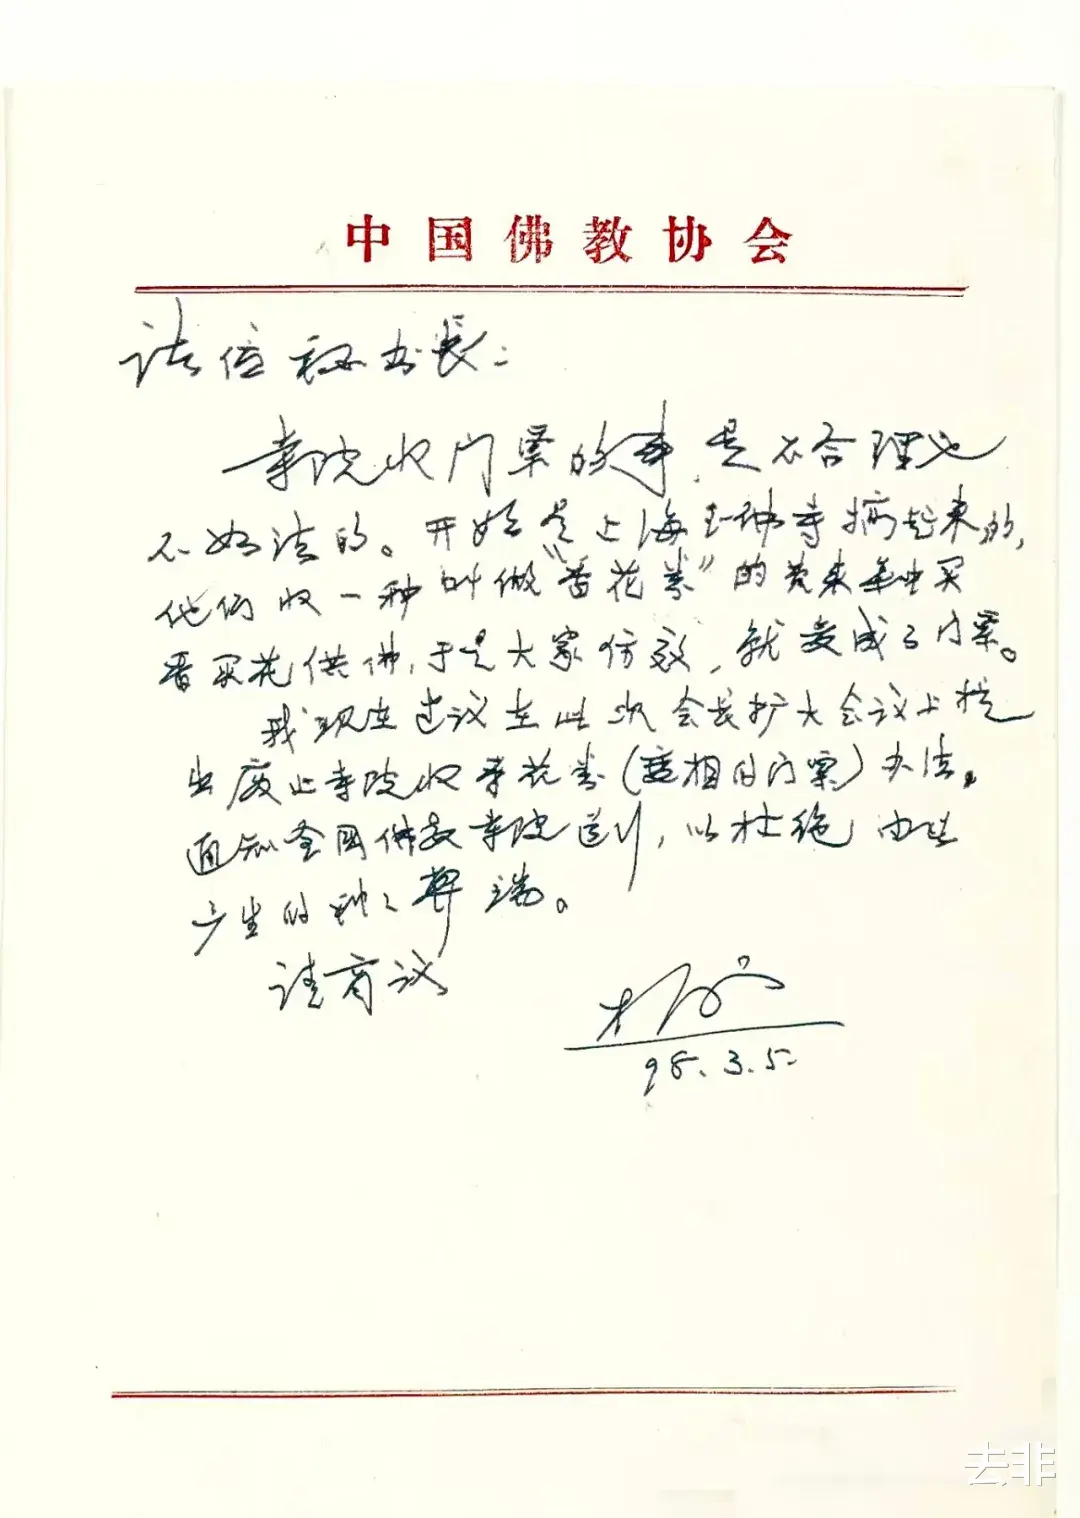 中国佛教协会
诸位秘书长：
寺院收门票的事，是不合理也
不如法的。开始是上海玉佛寺搞起来的，
他们收一种叫做“香花券”的费来集中买
香买花供佛，于是大家仿效，就变成了门票。
我现在建议在此次会长扩大会议上提
出废止寺院收香花券（变相的门票）办法，
通知全国佛教寺院遵行，以杜绝由此
产生的种种弊端。
请商议
98.3.5.
去非